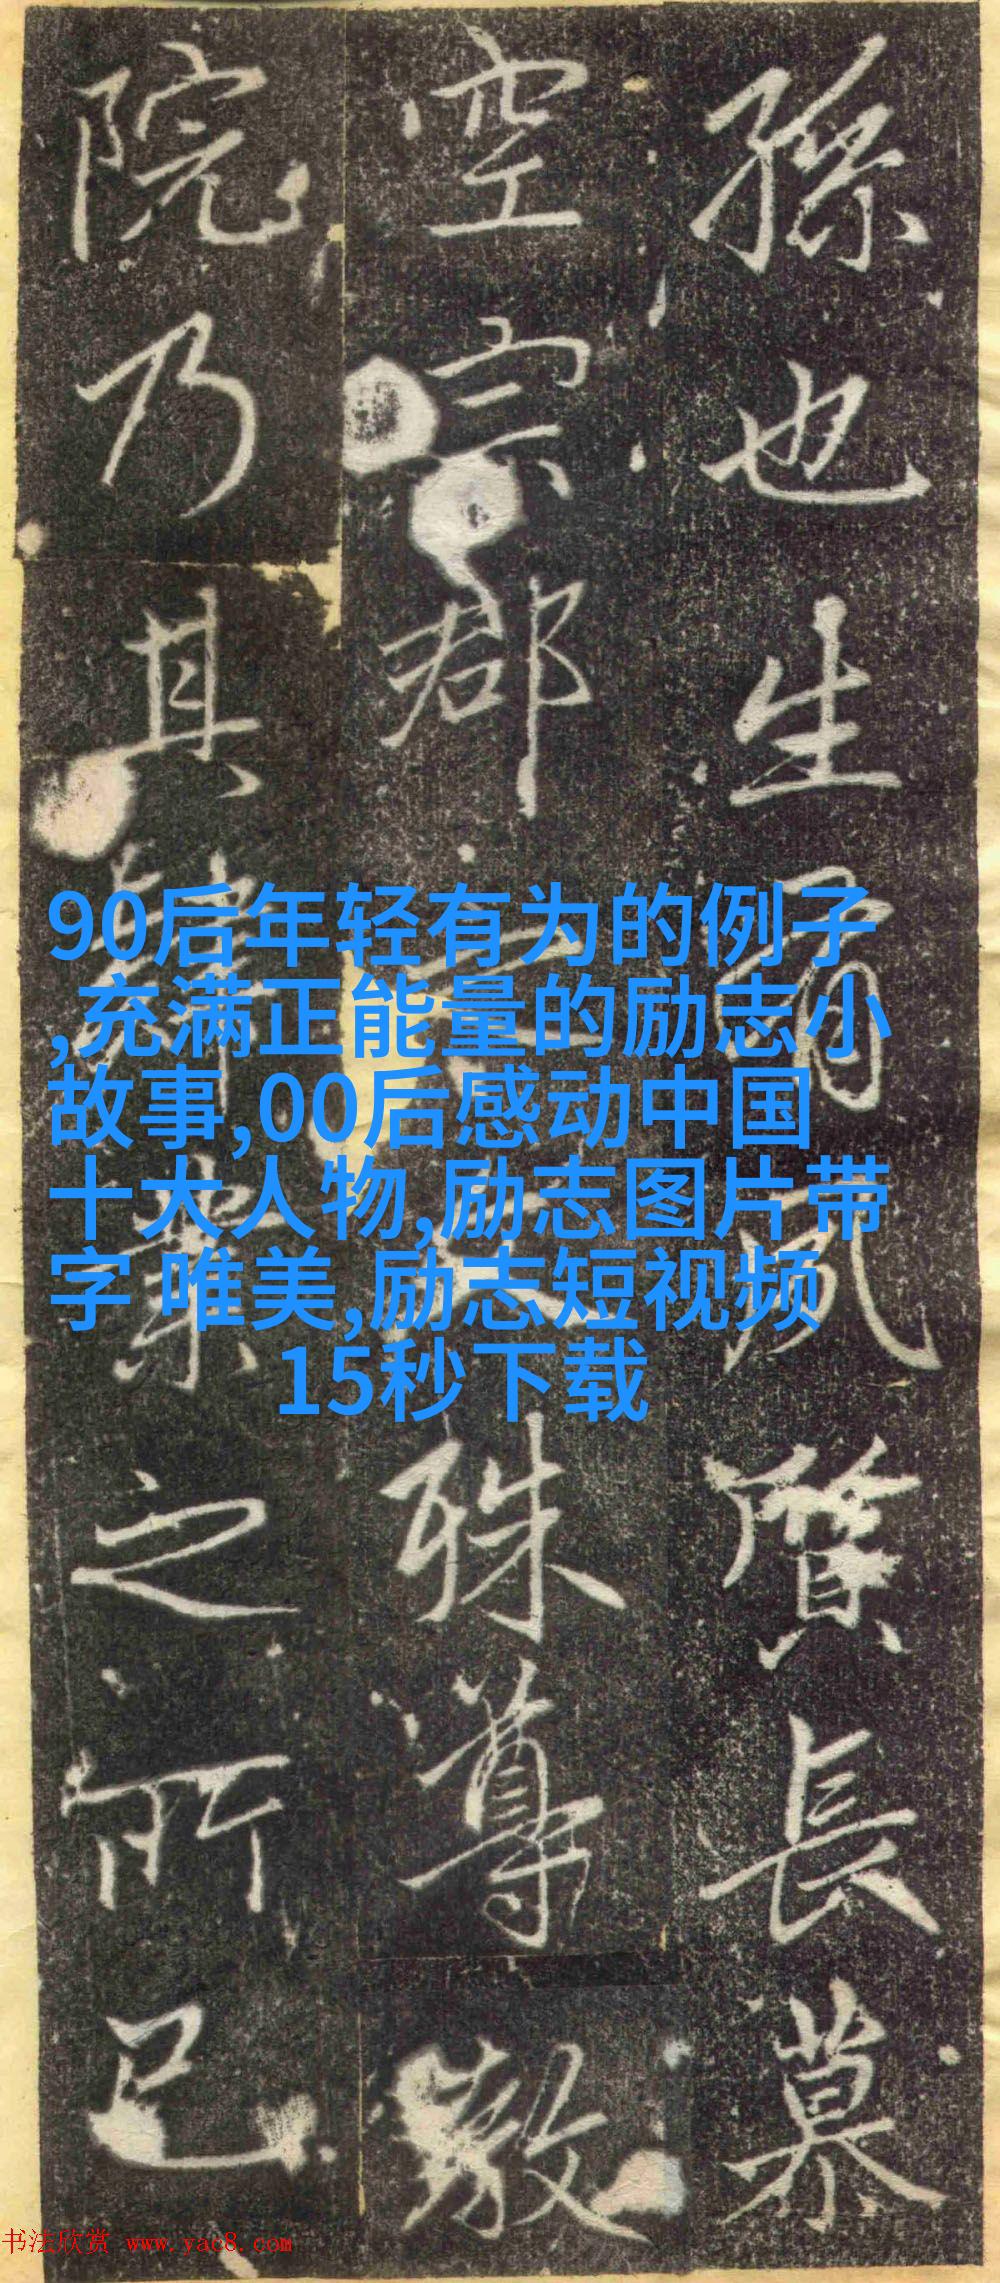 孫也生有風質長慕
空宗郡
殊尊敬
院乃其肄業之所已
90后年轻有为的例子
,充满正能量的励志小
故事,00后感动中国
十大人物,励志图片带
字 唯美,励志短视频
15秒下载
书法欣赏 www.yac8.com